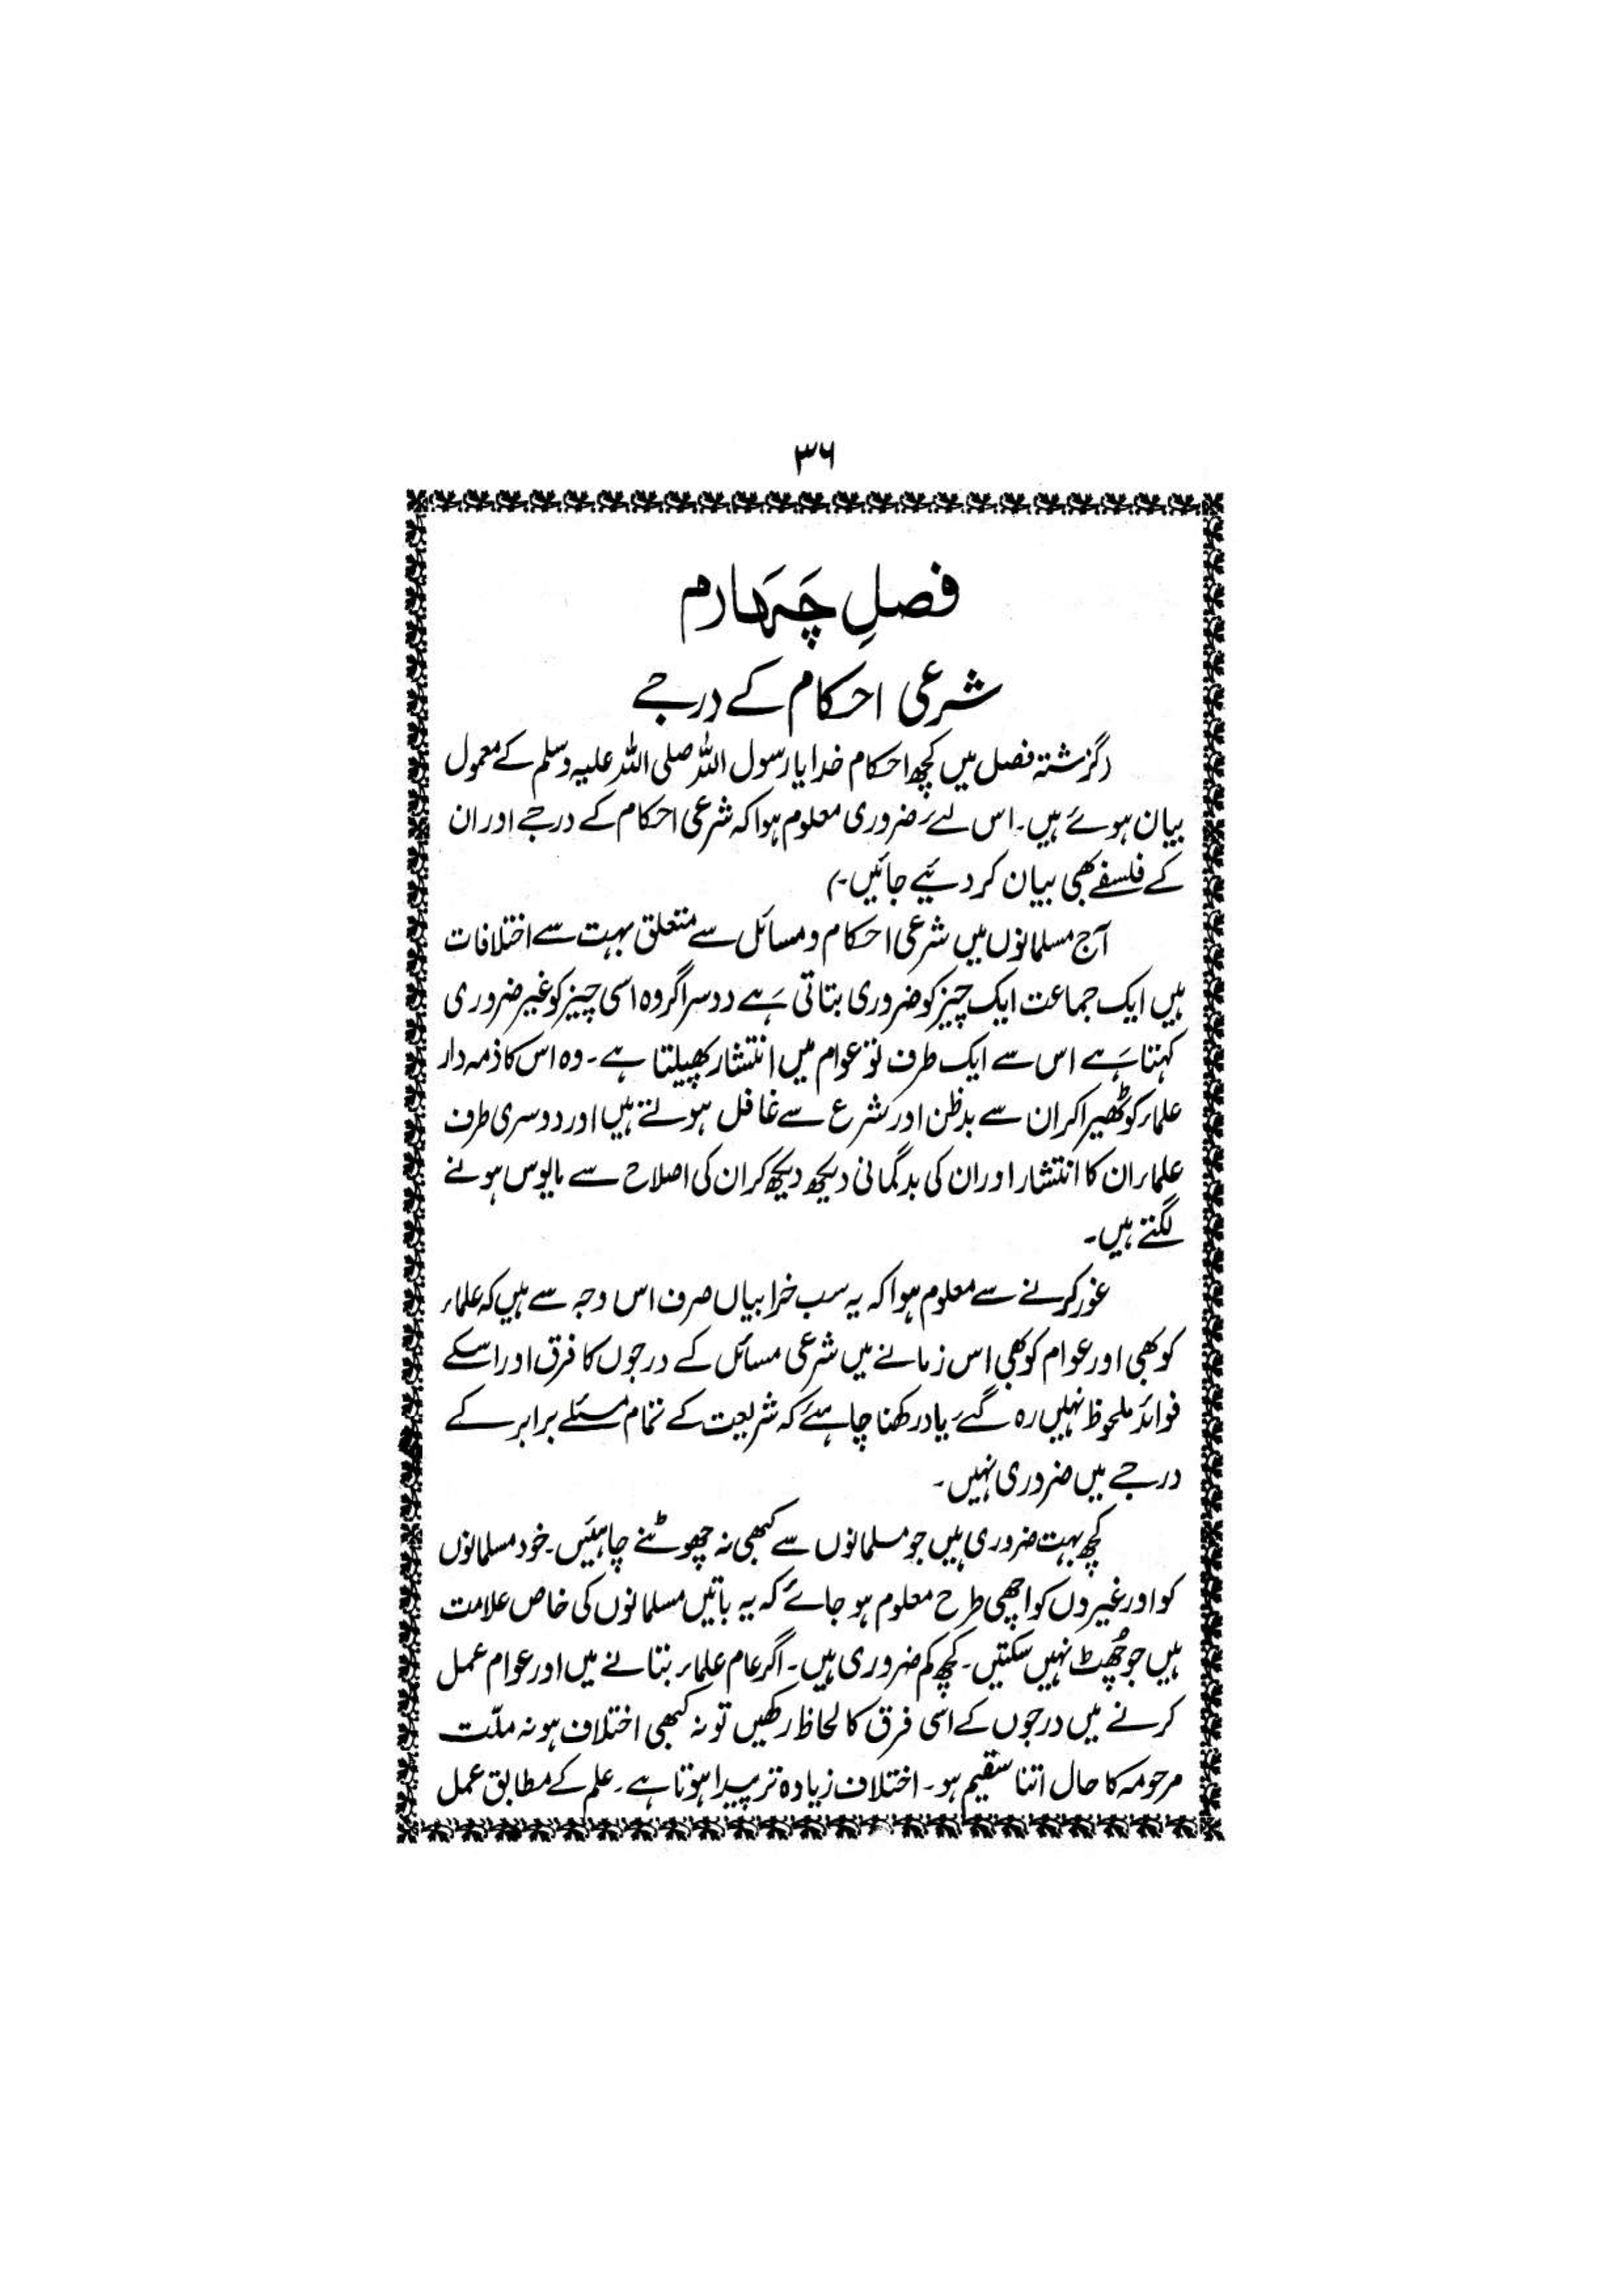 ۳۶
فصلِ چَہَارم
شرعی احکام کے درجے
(گزشتہ فصل میں کچھ احکام خدا یا رسول اللہ صلی اللہ علیہ وسلم کے معمول
بیان ہوئے ہیں۔ اس لئے ضروری معلوم ہوا کہ شرعی احکام کے درجے اور ان
کے فلسفے بھی بیان کر دئیے جائیں۔)
آج مسلمانوں میں شرعی احکام و مسائل سے متعلق بہت سے اختلافات
ہیں ایک جماعت ایک چیز کو ضروری بتاتی ہے دوسرا گروہ اسی چیز کو غیر ضروری
کہتا ہے اس سے ایک طرف تو عوام میں انتشار پھیلتا ہے۔ وہ اس کا ذمہ دار
علماء کو ٹھیرا کر ان سے بدظن اور شرع سے غافل ہوتے ہیں اور دوسری طرف
علماء ان کا انتشار اور ان کی بدگمانی دیکھ دیکھ کر ان کی اصلاح سے مایوس ہونے
لگتے ہیں۔
غور کرنے سے معلوم ہوا کہ یہ سب خرابیاں صرف اس وجہ سے ہیں کہ علماء
کو بھی اور عوام کو بھی اس زمانے میں شرعی مسائل کے درجوں کا فرق اور اسکے
فوائد ملحوظ نہیں رہ گئے یاد رکھنا چاہئے کہ شریعت کے تمام مسئلے برابر کے
درجے میں ضروری نہیں۔
کچھ بہت ضروری ہیں جو مسلمانوں سے کبھی نہ چھوٹنے چاہئیں۔ خود مسلمانوں
کو اور غیروں کو اچھی طرح معلوم ہو جائے کہ یہ باتیں مسلمانوں کی خاص علامت
ہیں جو چُھٹ نہیں سکتیں۔ کچھ کم ضروری ہیں۔ اگر عام علماء بتانے میں اور عوام عمل
کرنے میں درجوں کے اسی فرق کا لحاظ رکھیں تو نہ کبھی اختلاف ہو نہ ملّت
مرحومہ کا حال اتنا سقیم ہو۔ اختلاف زیادہ تر پیدا ہوتا ہے۔ علم کے مطابق عمل